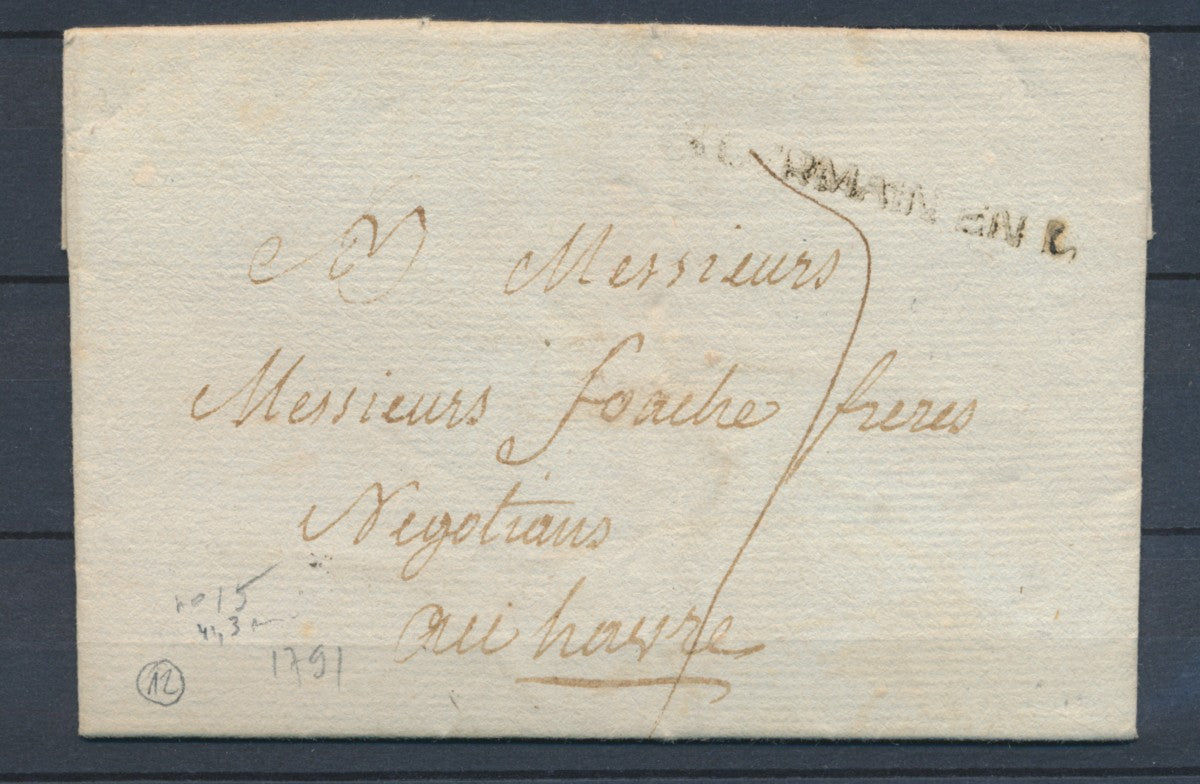 RMAIN EN L
A Messieurs
Messieurs foache freres
Negotians
au havre
no 15
1791
12